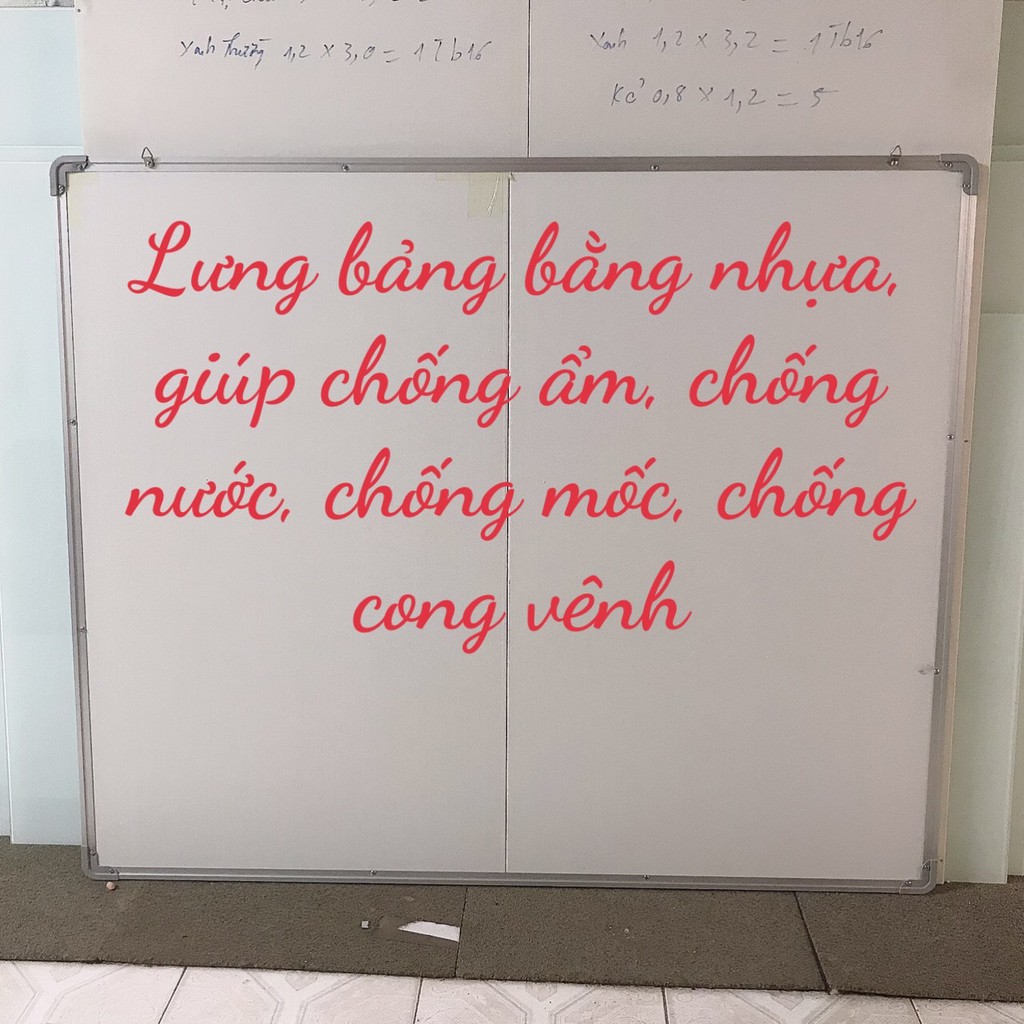 Xanh Thường 1,2 x 3,0 = 1Tb16
Xanh 1,2 x 3,2 = 1Tb16
Kẻ 0,8 x 1,2 = 5
Lưng bảng bằng nhựa,
giúp chống ẩm, chống
nước, chống mốc, chống
cong vênh